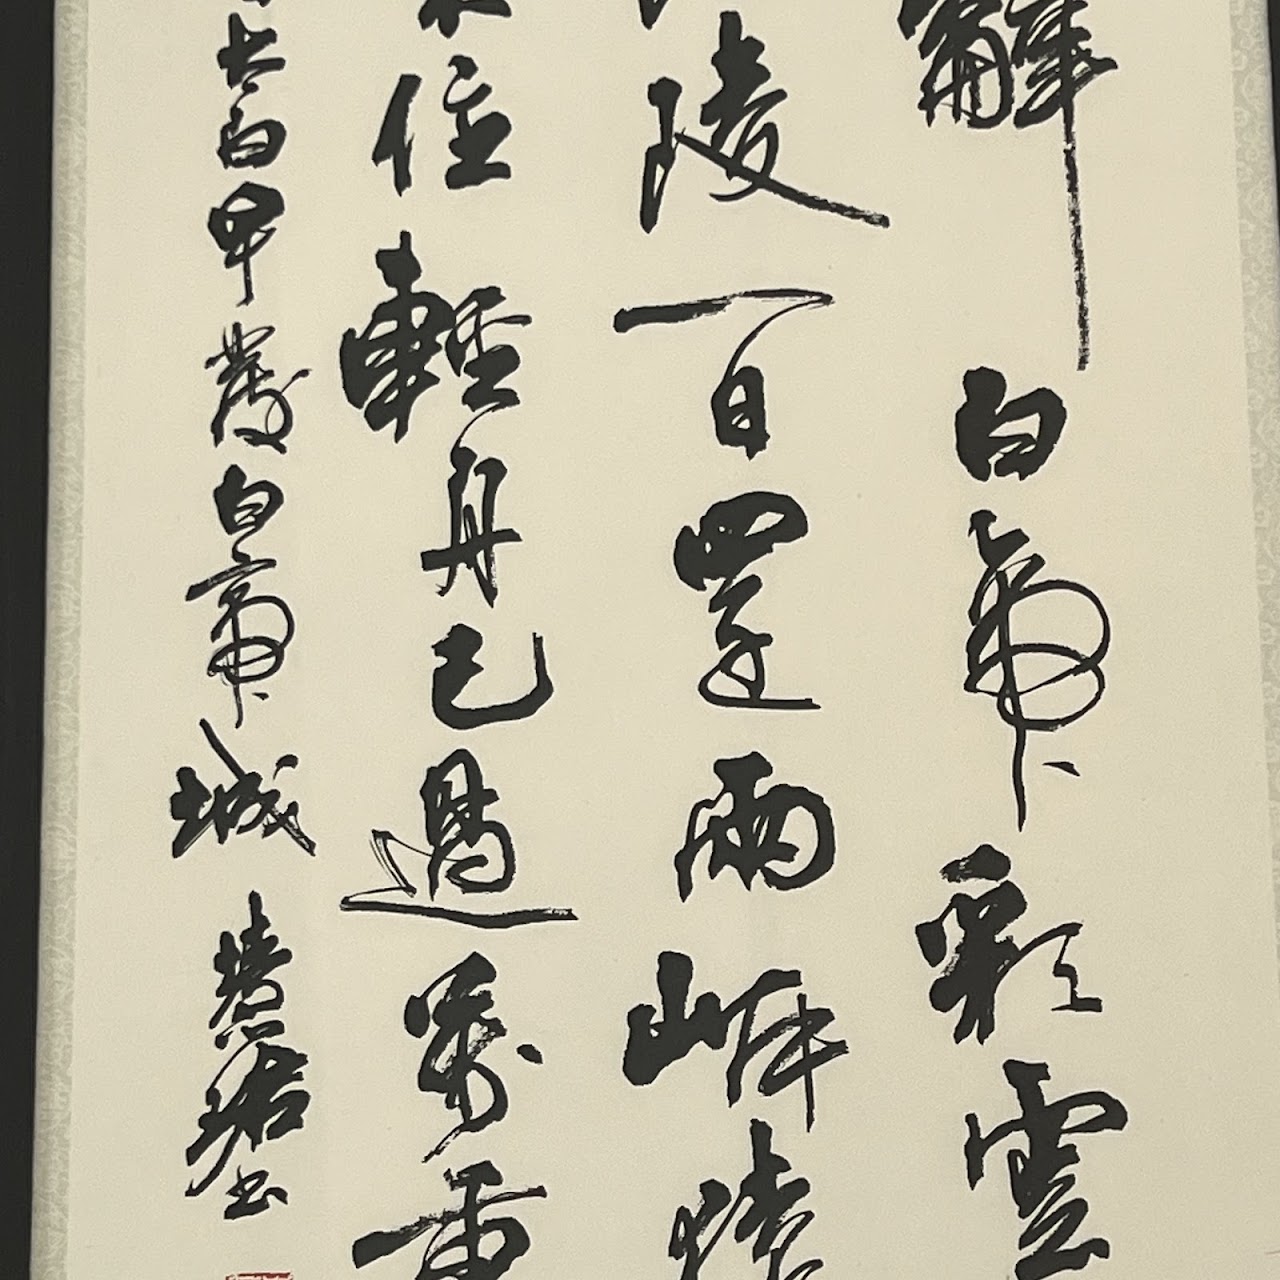 辭白帝彩雲
陵一日還兩岸猿
住輕舟已過萬重
太白早發白帝城 書